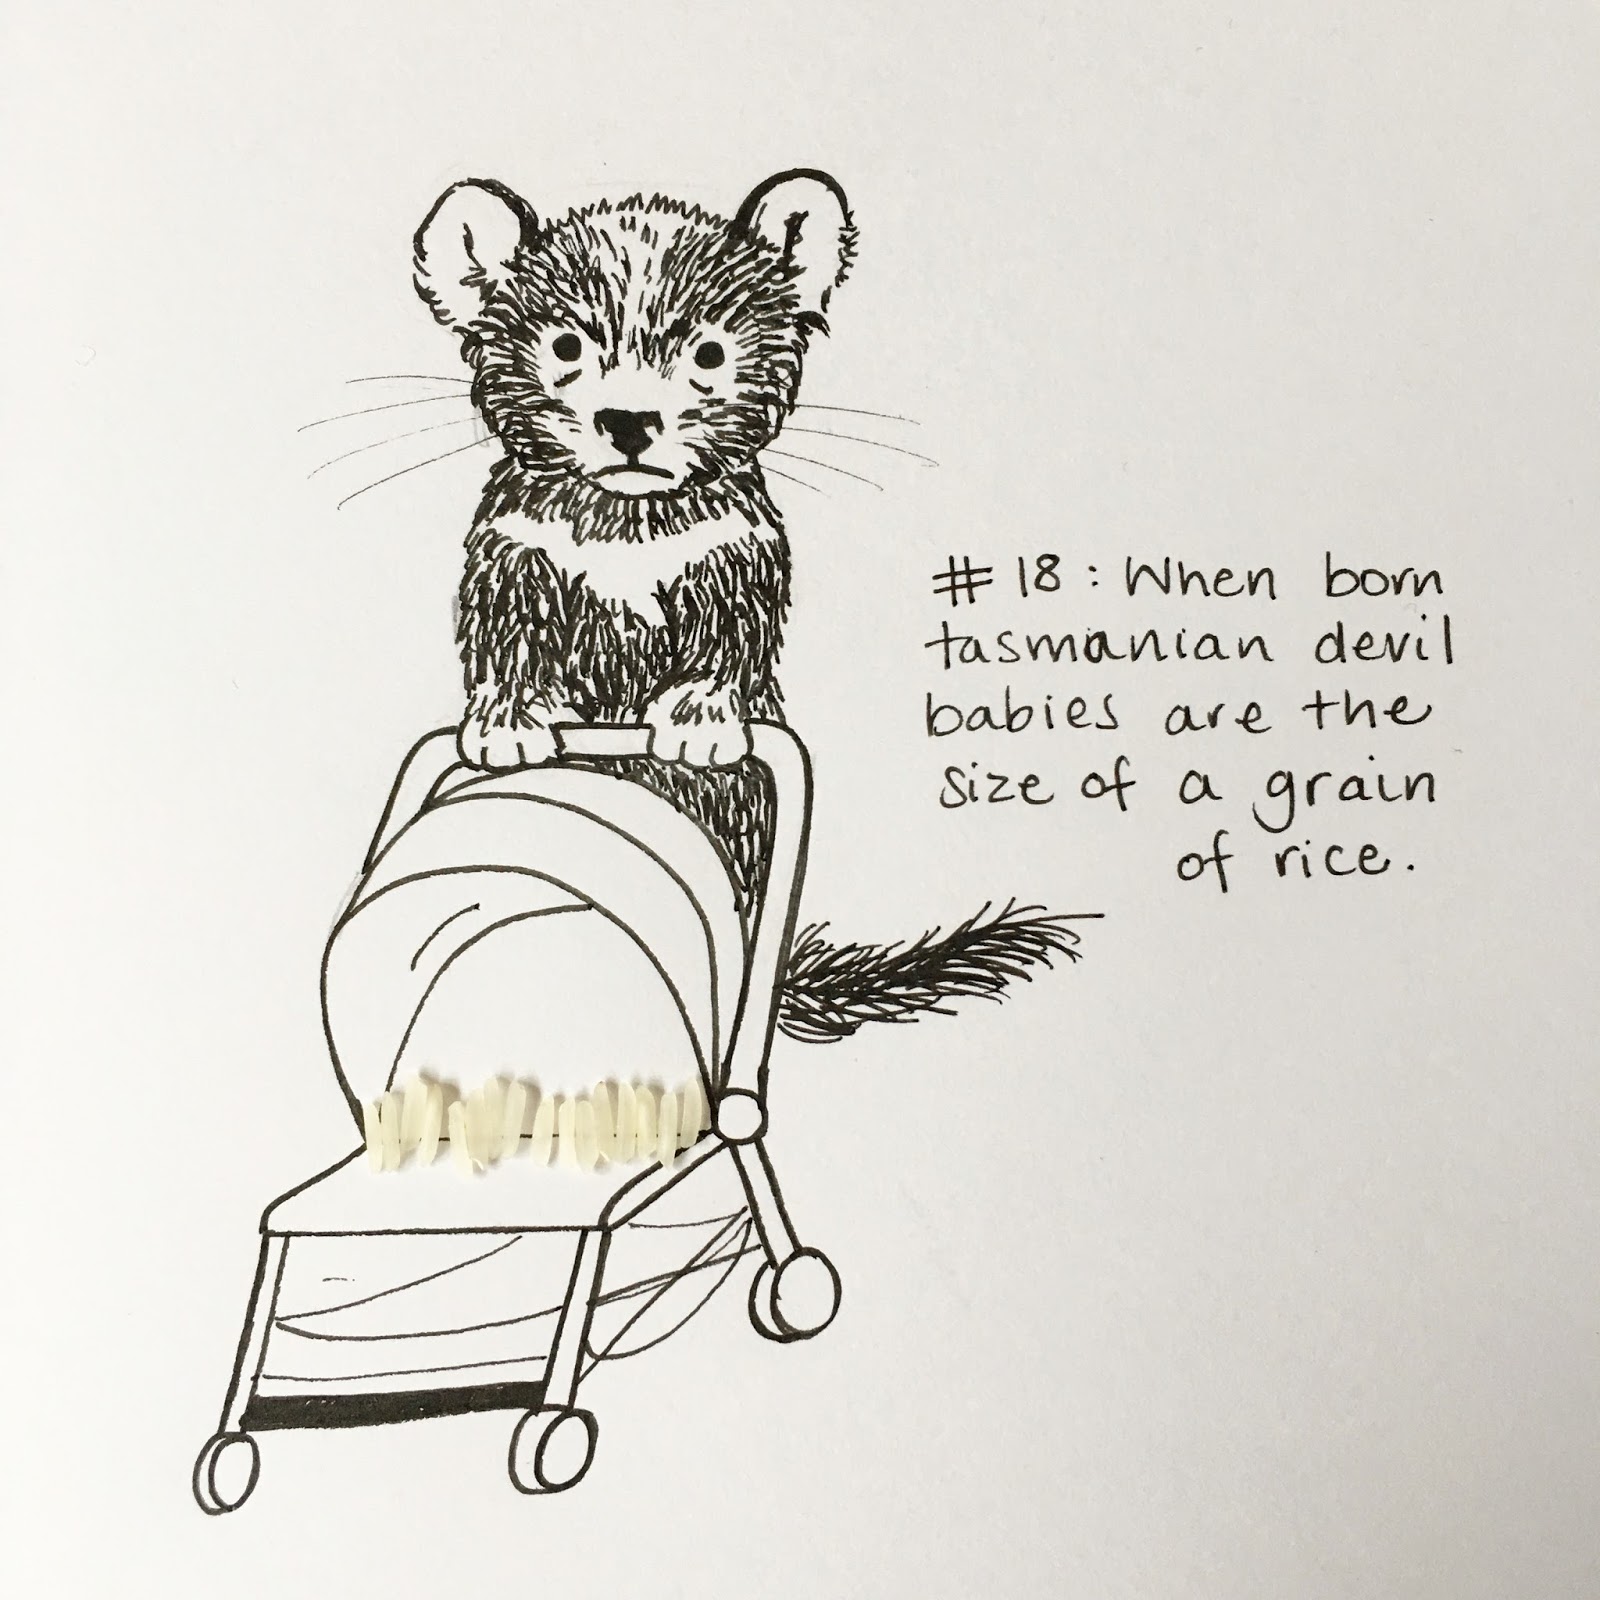 #18: When born
tasmanian devil
babies are the
size of a grain
of rice.